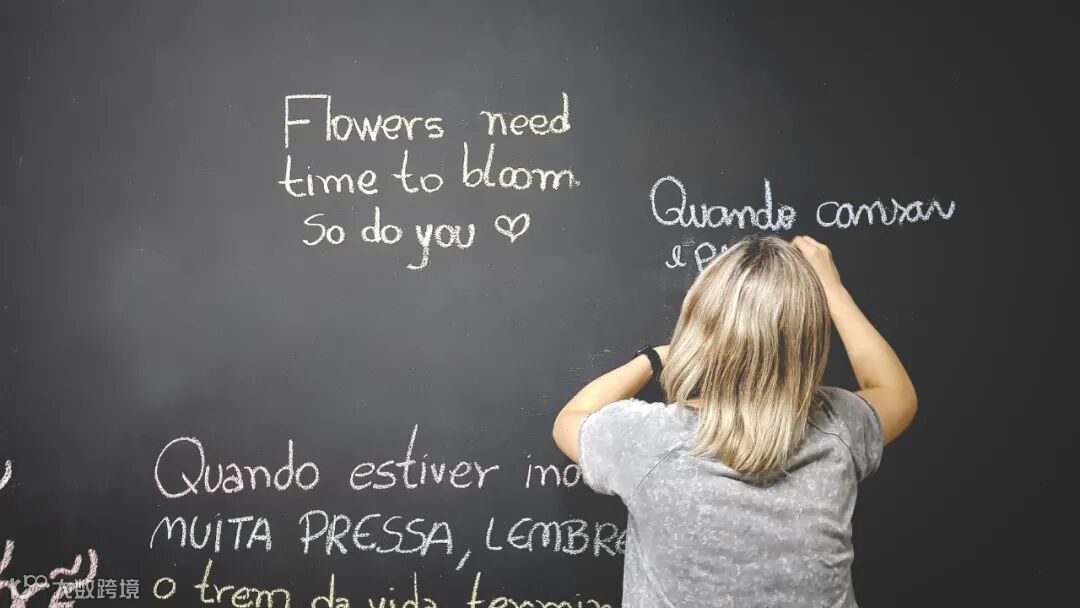 Flowers need
time to bloom
so do you ♡
Quando cansar
Quando estiver
MUITA PRESSA, LEMBRE
o trem da vida
大数跨境